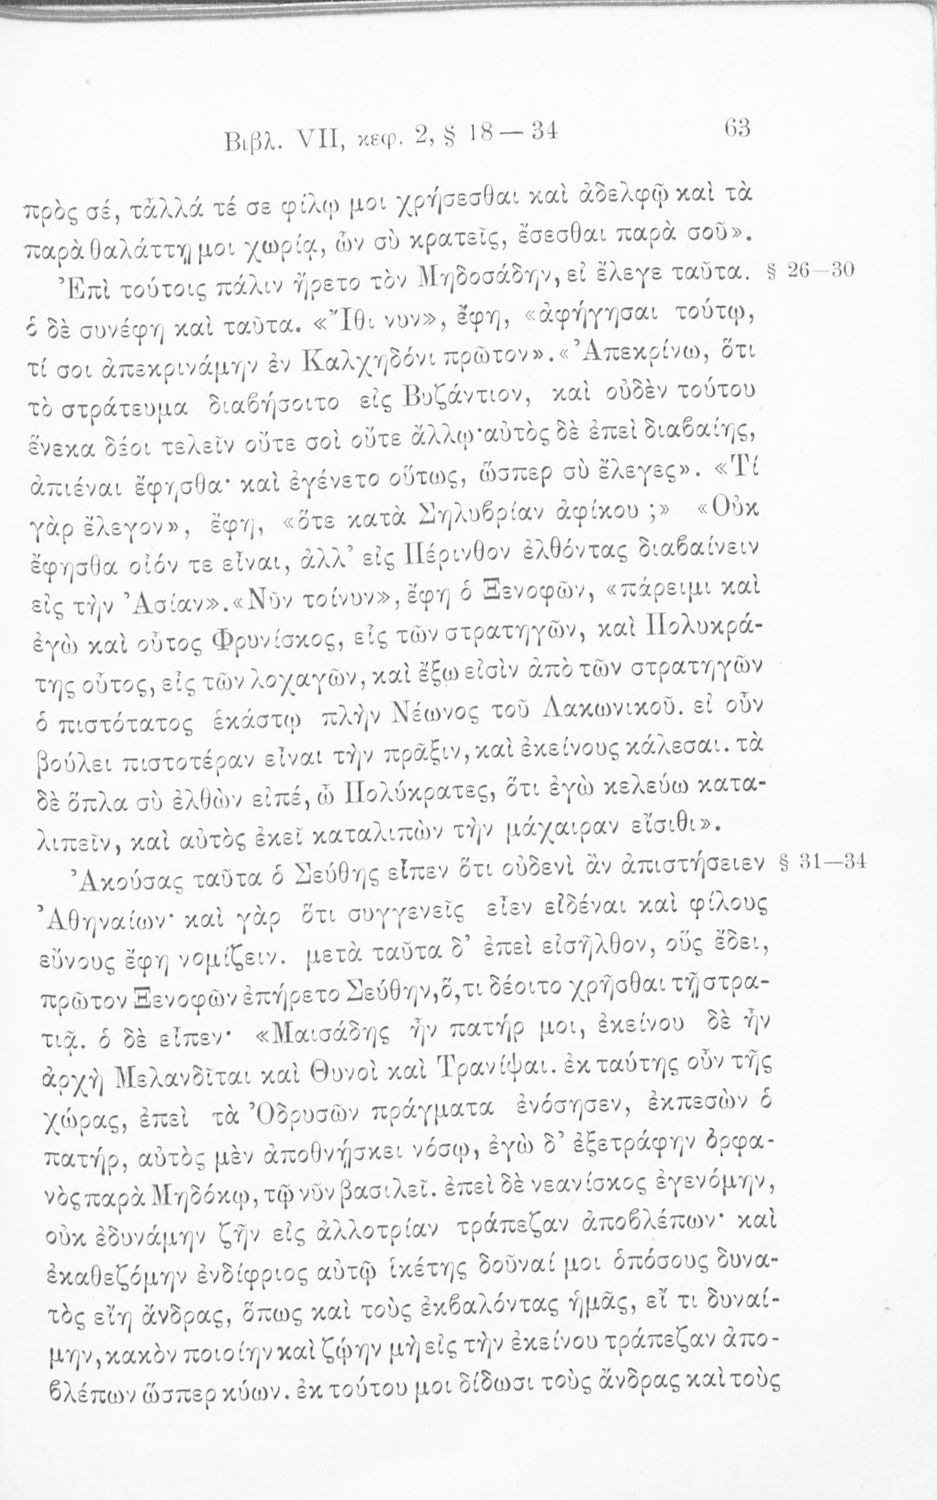 Βιβλ. VII, κεφ. 2, § 18 — 34 63
πρὸς σέ, τἆλλά τέ σε φίλῳ μοι χρήσεσθαι καὶ ἀδελφῷ καὶ τὰ
παρὰ θαλάττῃ μοι χωρία, ὧν σὺ κρατεῖς, ἔσεσθαι παρὰ σοῦ».
Ἐπὶ τούτοις πάλιν ἤρετο τὸν Μηδοσάδην, εἰ ἔλεγε ταῦτα. § 26—30
ὁ δὲ συνέφη καὶ ταῦτα. «Ἴθι νυν», ἔφη, «ἀφήγησαι τούτῳ,
τί σοι ἀπεκρινάμην ἐν Καλχηδόνι πρῶτον». «Ἀπεκρίνω, ὅτι
τὸ στράτευμα διαβήσοιτο εἰς Βυζάντιον, καὶ οὐδὲν τούτου
ἕνεκα δέοι τελεῖν οὔτε σοὶ οὔτε ἄλλῳ· αὐτὸς δὲ ἐπεὶ διαβαίης,
ἀπιέναι ἔφησθα· καὶ ἐγένετο οὕτως, ὥσπερ σὺ ἔλεγες». «Τί
γὰρ ἔλεγον», ἔφη, «ὅτε κατὰ Σηλυβρίαν ἀφίκου ;» «Οὐκ
ἔφησθα οἷόν τε εἶναι, ἀλλ’ εἰς Πέρινθον ἐλθόντας διαβαίνειν
εἰς τὴν Ἀσίαν». «Νῦν τοίνυν», ἔφη ὁ Ξενοφῶν, «πάρειμι καὶ
ἐγὼ καὶ οὗτος Φρυνίσκος, εἷς τῶν στρατηγῶν, καὶ Πολυκρά-
της οὗτος, εἷς τῶν λοχαγῶν, καὶ ἔξω εἰσὶν ἀπὸ τῶν στρατηγῶν
ὁ πιστότατος ἑκάστῳ πλὴν Νέωνος τοῦ Λακωνικοῦ. εἰ οὖν
βούλει πιστοτέραν εἶναι τὴν πρᾶξιν, καὶ ἐκείνους κάλεσαι. τὰ
δὲ ὅπλα σὺ ἐλθὼν εἰπέ, ὦ Πολύκρατες, ὅτι ἐγὼ κελεύω κατα-
λιπεῖν, καὶ αὐτὸς ἐκεῖ καταλιπὼν τὴν μάχαιραν εἴσιθι».
Ἀκούσας ταῦτα ὁ Σεύθης εἶπεν ὅτι οὐδενὶ ἂν ἀπιστήσειεν § 31—34
Ἀθηναίων· καὶ γὰρ ὅτι συγγενεῖς εἶεν εἰδέναι καὶ φίλους
εὔνους ἔφη νομίζειν. μετὰ ταῦτα δ’ ἐπεὶ εἰσῆλθον, οὓς ἔδει,
πρῶτον Ξενοφῶν ἐπήρετο Σεύθην, ὅ,τι δέοιτο χρῆσθαι τῇ στρα-
τιᾷ. ὁ δὲ εἶπεν· «Μαισάδης ἦν πατήρ μοι, ἐκείνου δὲ ἦν
ἀρχὴ Μελανδῖται καὶ Θυνοὶ καὶ Τρανίψαι. ἐκ ταύτης οὖν τῆς
χώρας, ἐπεὶ τὰ Ὀδρυσῶν πράγματα ἐνόσησεν, ἐκπεσὼν ὁ
πατήρ, αὐτὸς μὲν ἀποθνῄσκει νόσῳ, ἐγὼ δ’ ἐξετράφην ὀρφα-
νὸς παρὰ Μηδόκῳ, τῷ νῦν βασιλεῖ. ἐπεὶ δὲ νεανίσκος ἐγενόμην,
οὐκ ἐδυνάμην ζῆν εἰς ἀλλοτρίαν τράπεζαν ἀποβλέπων· καὶ
ἐκαθεζόμην ἐνδίφριος αὐτῷ ἱκέτης δοῦναί μοι ὁπόσους δυνα-
τὸς εἴη ἄνδρας, ὅπως καὶ τοὺς ἐκβαλόντας ἡμᾶς, εἴ τι δυναί-
μην, κακὸν ποιοίην καὶ ζῴην μὴ εἰς τὴν ἐκείνου τράπεζαν ἀπο-
βλέπων ὥσπερ κύων. ἐκ τούτου μοι δίδωσι τοὺς ἄνδρας καὶ τοὺς